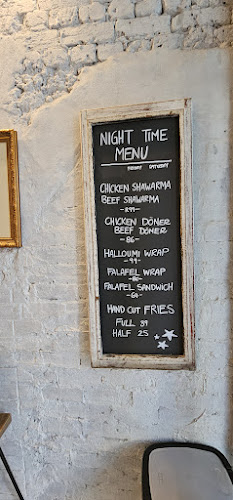 NIGHT TIME
MENU
CHICKEN SHAWARMA
BEEF SHAWARMA
CHICKEN DÖNER
BEEF DÖNER
-86-
HALLOUMI WRAP
-99-
FALAFEL WRAP
FALAFEL SANDWICH
HAND CUT FRIES
FULL 39
HALF 25